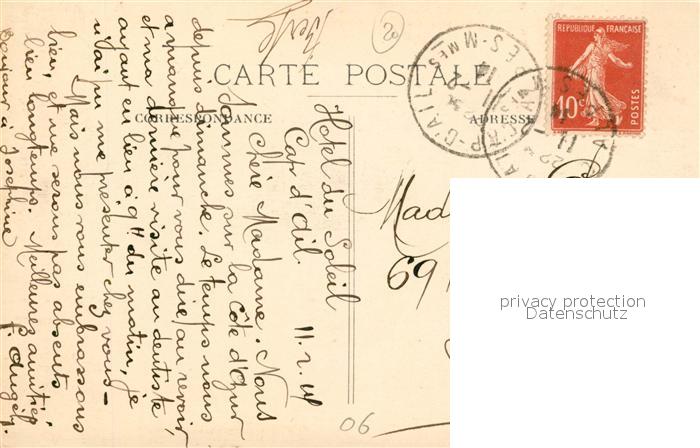 Verte
20
CARTE POSTALE
CORRESPONDANCE
ADRESSE
REPUBLIQUE FRANÇAISE
10c
POSTES
CAP-D'AIL
ALPES-MMES
11
22
Hotel du Soleil
Cap d'Ail. 11.2.14
Chère Madame. Nous
sommes sur la Côte d'Azur
depuis dimanche. Le temps nous
a manqué pour vous dire au revoir,
et ma dernière visite au dentiste
ayant eu lieu à 9H du matin, je
n'ai pu me présenter chez vous_
Mais nous vous embrassons
bien, et ne serons pas absents
bien longtemps. Meilleures amitiés
Bonjour à Joséphine
Mad
69
06
privacy protection
Datenschutz